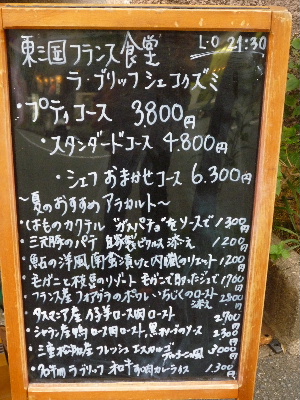 東三国フランス食堂 L・O 21:30
ラ・ブリッフ シェ コクズミ
・プティコース 3800円
・スタンダードコース 4.800円
・シェフ おまかせコース 6.300円
〜夏のおすすめ アラカルト〜
・はものカクテル "ガスパチョ"をソースで 1300円
・三元豚のパテ 自家製ピクルス 添え 1200円
・鮎の洋風 内臓のリエット 1200円
・モガニと枝豆のリゾート モガニで取ったジュで 1700円
・フランス産 フォアグラのポワレ いちじくのロースト 添え 2800円
・タスマニア産 仔羊 ロース肉 ロースト 2700円
・シャラン産 鴨 ロース肉 ロースト 2300円
・三重松阪産 フレッシュ エスカルゴ 風 3000円
・ラ ブリッフ 和牛 すね肉 カレーライス 1.300円